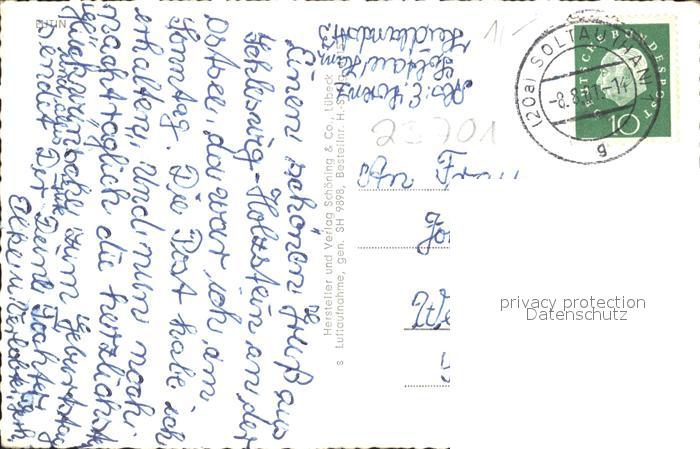 EUTIN
Einen schönen Gruß aus
Schleswig-Holstein an der
Ostsee, da war ich am
Sonntag. Die Post habe ich
erhalten. Und nun noch
nachträglich die herzlichsten
Glückwünsche zum Geburtstag
sendet Dir Deine Tochter
Hersteller und Verlag Schöning & Co., Lübeck
s Luftaufnahme, gen. SH 9898, Bestellnr. H.-S.
Abs.: E. Lorenz
Soltau/Hann
23701
An Frau
(20a) SOLTAU (HAN
-8.8.61-14
g
DEUTSCHE BUNDESPOST
10
privacy protection
Datenschutz